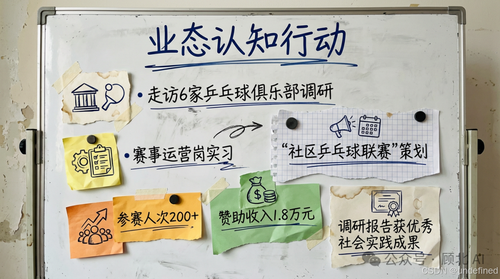 业态认知行动
• 走访6家乒乓球俱乐部调研
• 赛事运营岗实习
“社区乒乓球联赛”策划
参赛人次200+
赞助收入1.8万元
调研报告获优秀
社会实践成果
公众号·顾北AI
CSDN @undefined